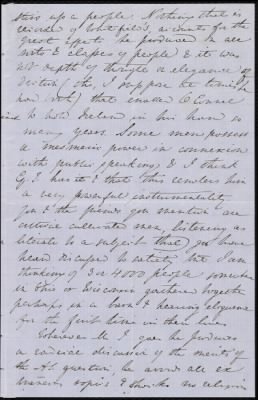 stirs up a people. Nothing that is
recorded of Whitefield, accounts for the
great effects he produced on all
sorts & classes of people & it was
not depth of thought or elegance of
diction (tho, I suppose he
had both) that enabled O'Connell
to hold Ireland in his hand so
many years. Some men possess
a mesmeric power in connexion
with public speaking & I think
G. T. has it & that this renders him
a very powerful instrumentality.
You & the friends you mention are
critical cultivated men, listening as
literati to a subject that you have
heard discussed to satiety. But I am
thinking of 3 or 4000 people somewhere
in Ohio or Wisconsin gathered together
perhaps in a barn & hearing eloquence
for the first time in their lives
Wherever he goes he produces
a candid discussion of the merits of
the A S question, he avoids all ex
traneous topics & shocks no religious